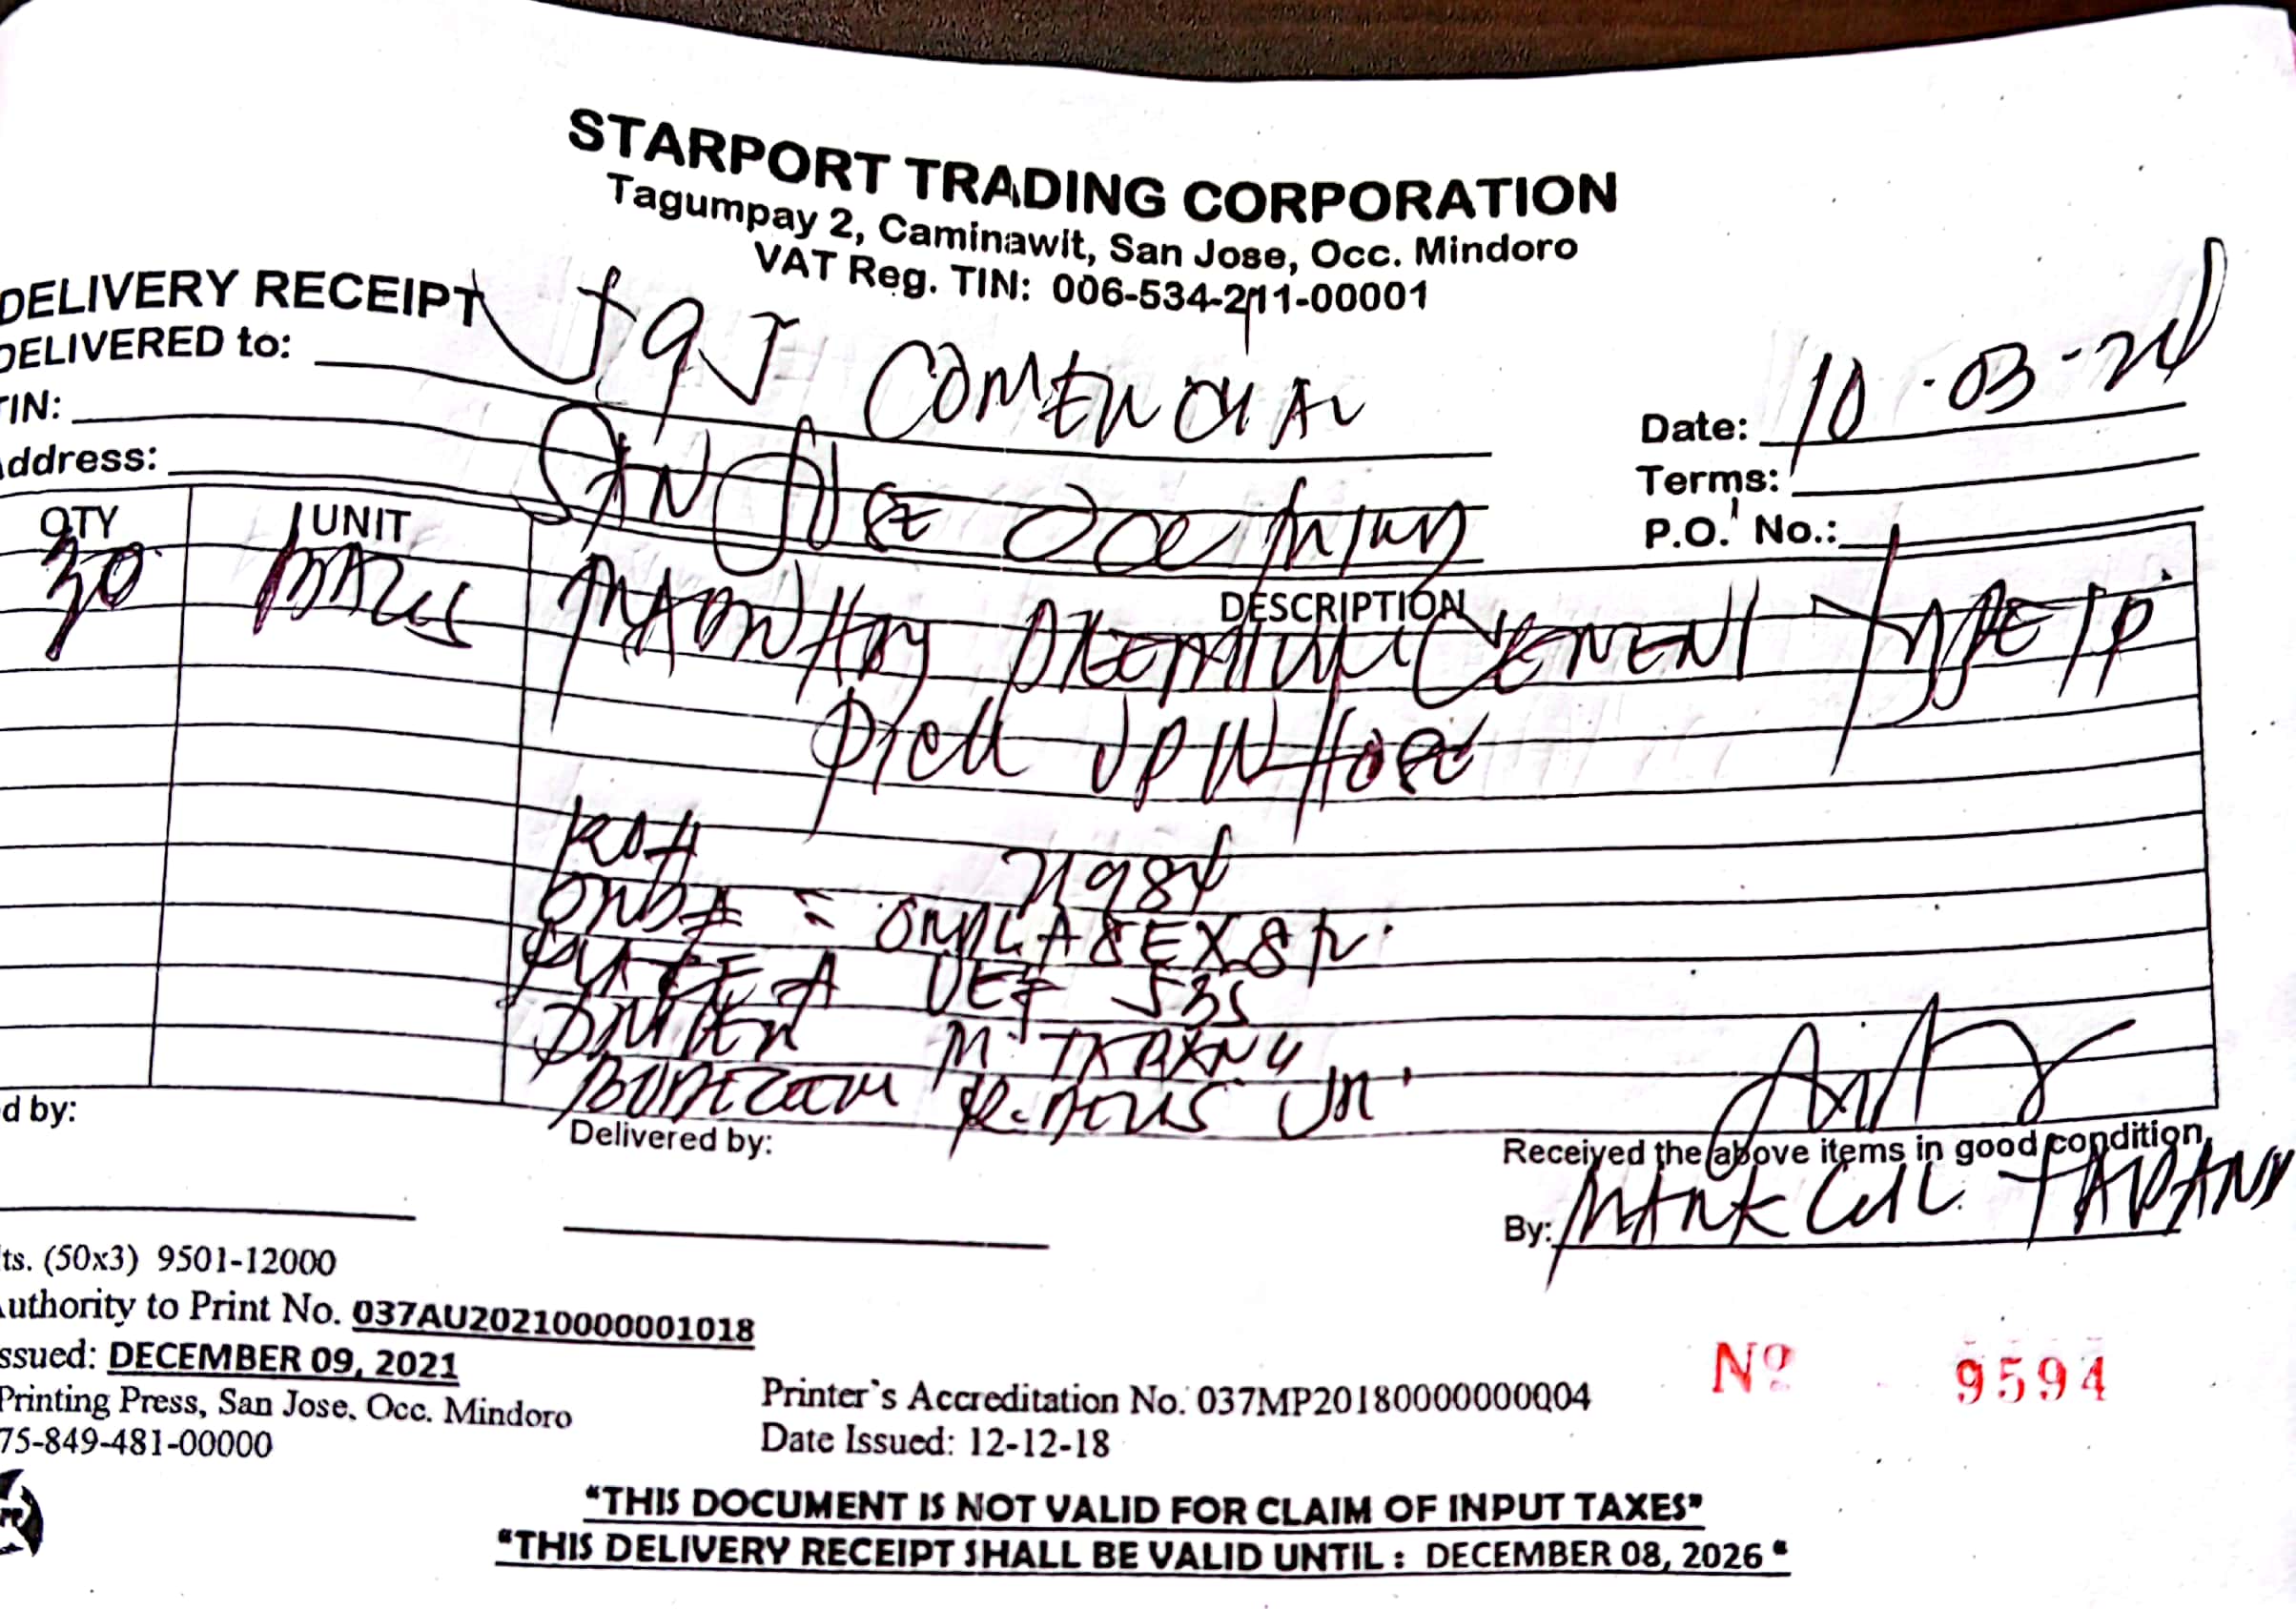 STARPORT TRADING CORPORATION
Tagumpay 2, Caminawit, San Jose, Occ. Mindoro
VAT Reg. TIN: 006-534-211-00001
DELIVERY RECEIPT
DELIVERED to: J9J COMERCIAL
TIN:
Address: SAN JOSE OCC
Date: 10-03-24
Terms:
P.O. No.:
QTY UNIT DESCRIPTION
30 BAGS PREMIUM CEMENT TYPE 1P
PICK UP WHOSE
21984
UEF 535
DRIVER M.
JR.
d by:
Delivered by:
Received the above items in good condition,
By: MARK GIL
ts. (50x3) 9501-12000
Authority to Print No. 037AU20210000001018
ssued: DECEMBER 09, 2021
Printing Press, San Jose, Occ. Mindoro
75-849-481-00000
Printer's Accreditation No. 037MP20180000000004
Date Issued: 12-12-18
Nº 9594
"THIS DOCUMENT IS NOT VALID FOR CLAIM OF INPUT TAXES"
"THIS DELIVERY RECEIPT SHALL BE VALID UNTIL : DECEMBER 08, 2026 "